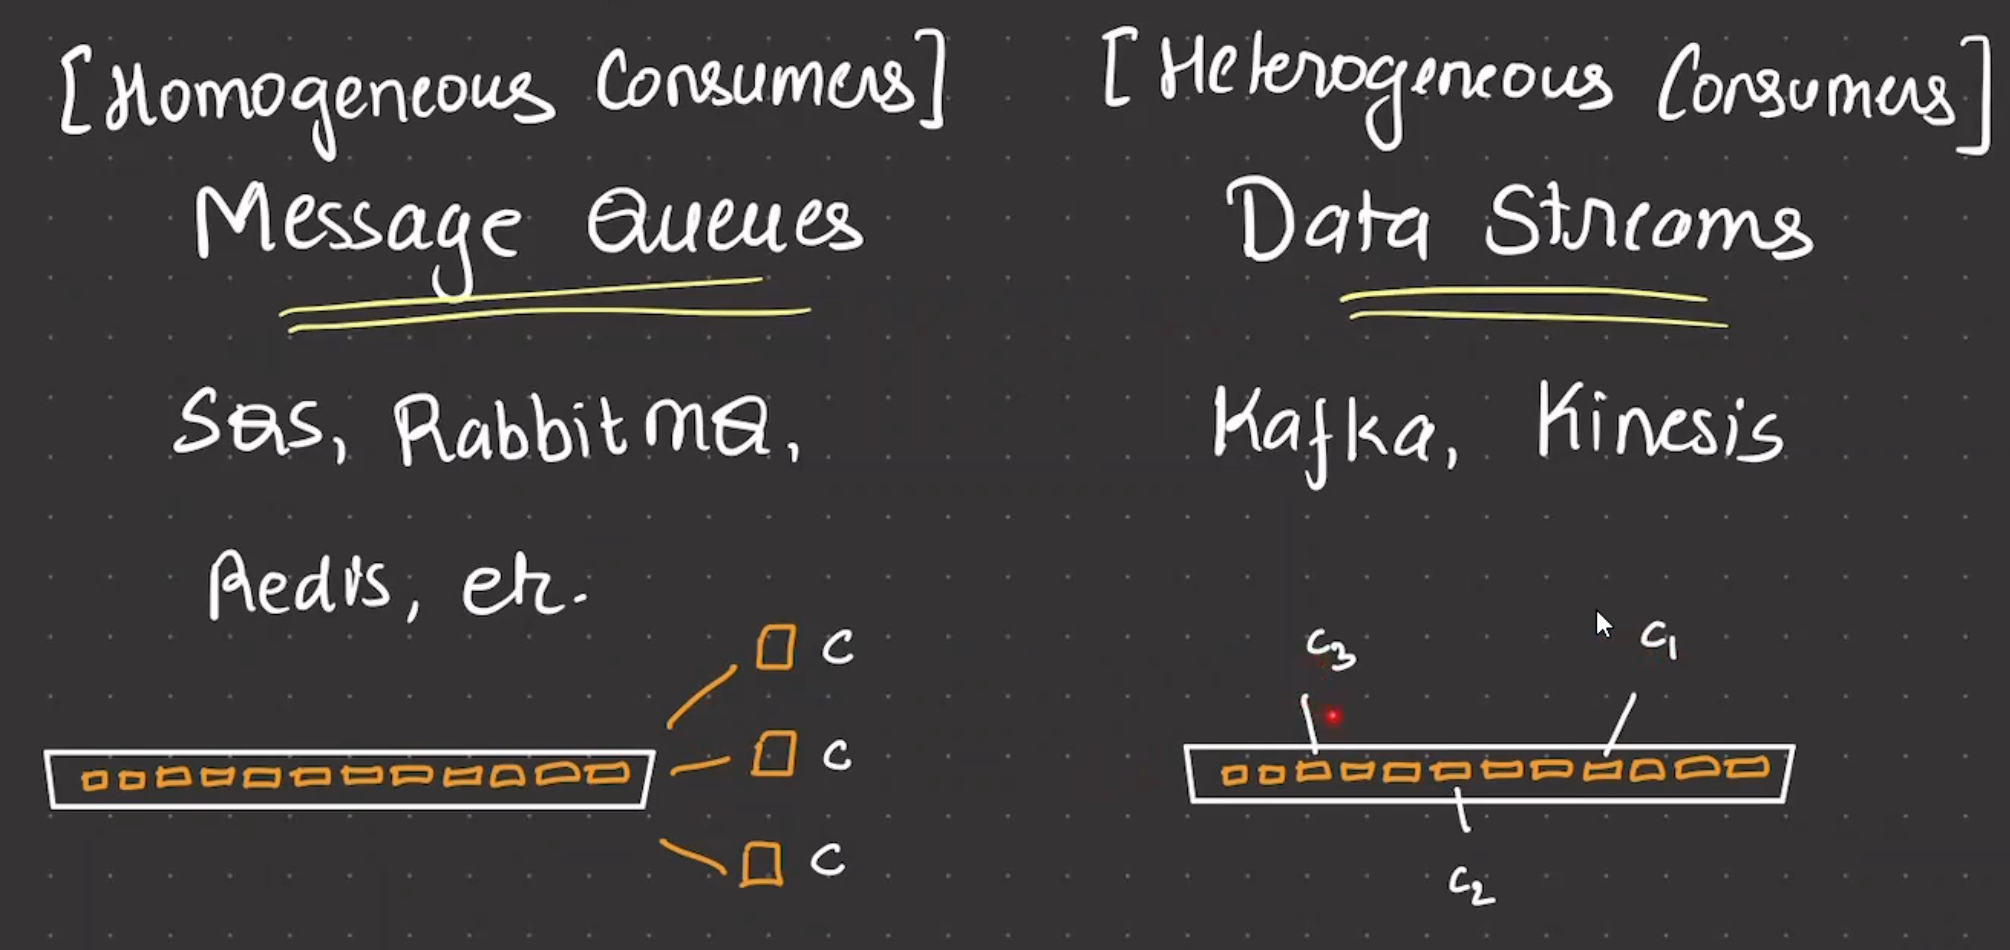 [Homogeneous Consumers]
Message Queues
SQS, RabbitMQ,
Redis, etc.
C
C
C
[Heterogeneous Consumers]
Data Streams
Kafka, Kinesis
C3
C1
C2